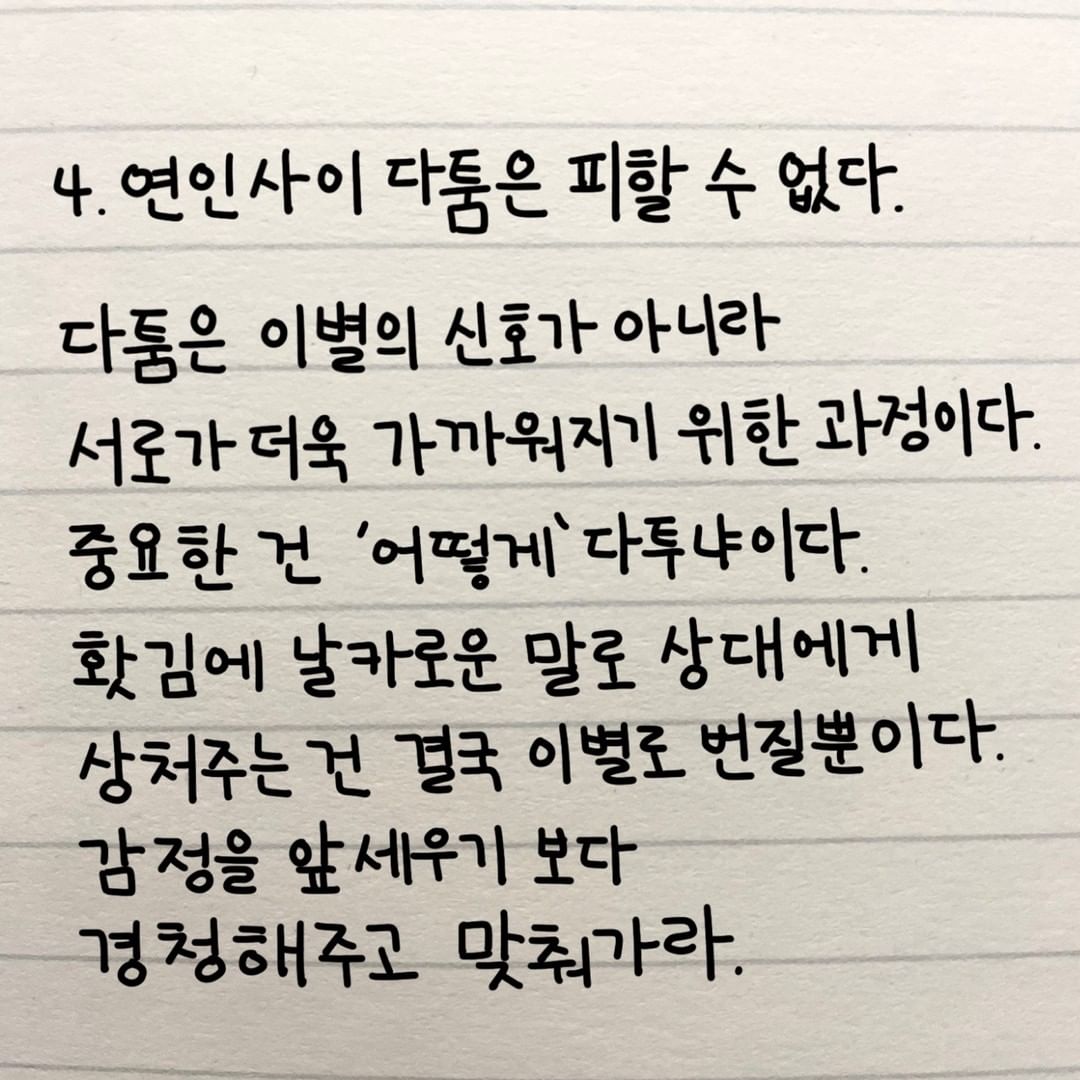 4. 연인사이 다툼은 피할 수 없다.
다툼은 이별의 신호가 아니라
서로가 더욱 가까워지기 위한 과정이다.
중요한 건 '어떻게' 다투냐이다.
홧김에 날카로운 말로 상대에게
상처주는 건 결국 이별로 번질뿐이다.
감정을 앞세우기 보다
경청해주고 맞춰가라.